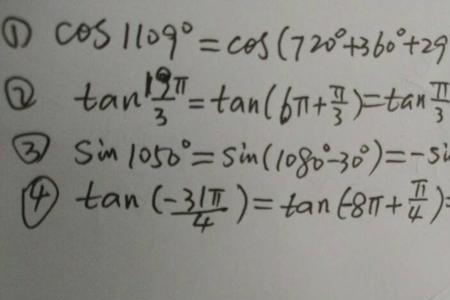 ① cos 1109° = cos(720°+360°+29
② tan 19π/3 = tan(6π+π/3) = tan π/3
③ sin 1050° = sin(1080°-30°) = -si
④ tan(-31π/4) = tan(-8π+π/4) =